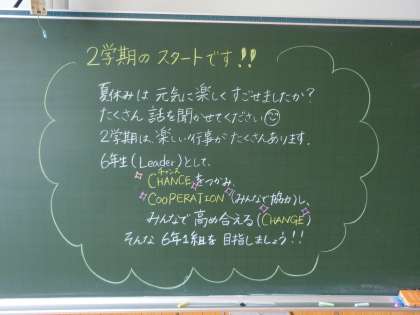 2学期の スタートです!!
夏休みは 元気に楽しくすごせましたか?
たくさん 話を聞かせてください☺
2学期は、楽しい行事が たくさんあります。
6年生(Leader)として、
チャンス
CHANCEをつかみ、
COOPERATION(みんなで協力)し、
みんなで 高め合える(CHANGE)
そんな 6年1組を目指しましょう!!